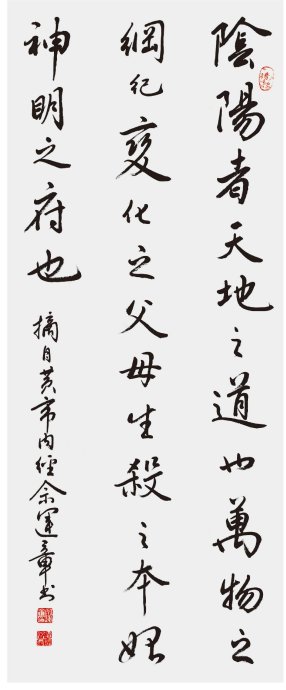 陰陽者天地之道也萬物之
綱紀變化之父母生殺之本始
神明之府也
摘自黄帝内經余運章书